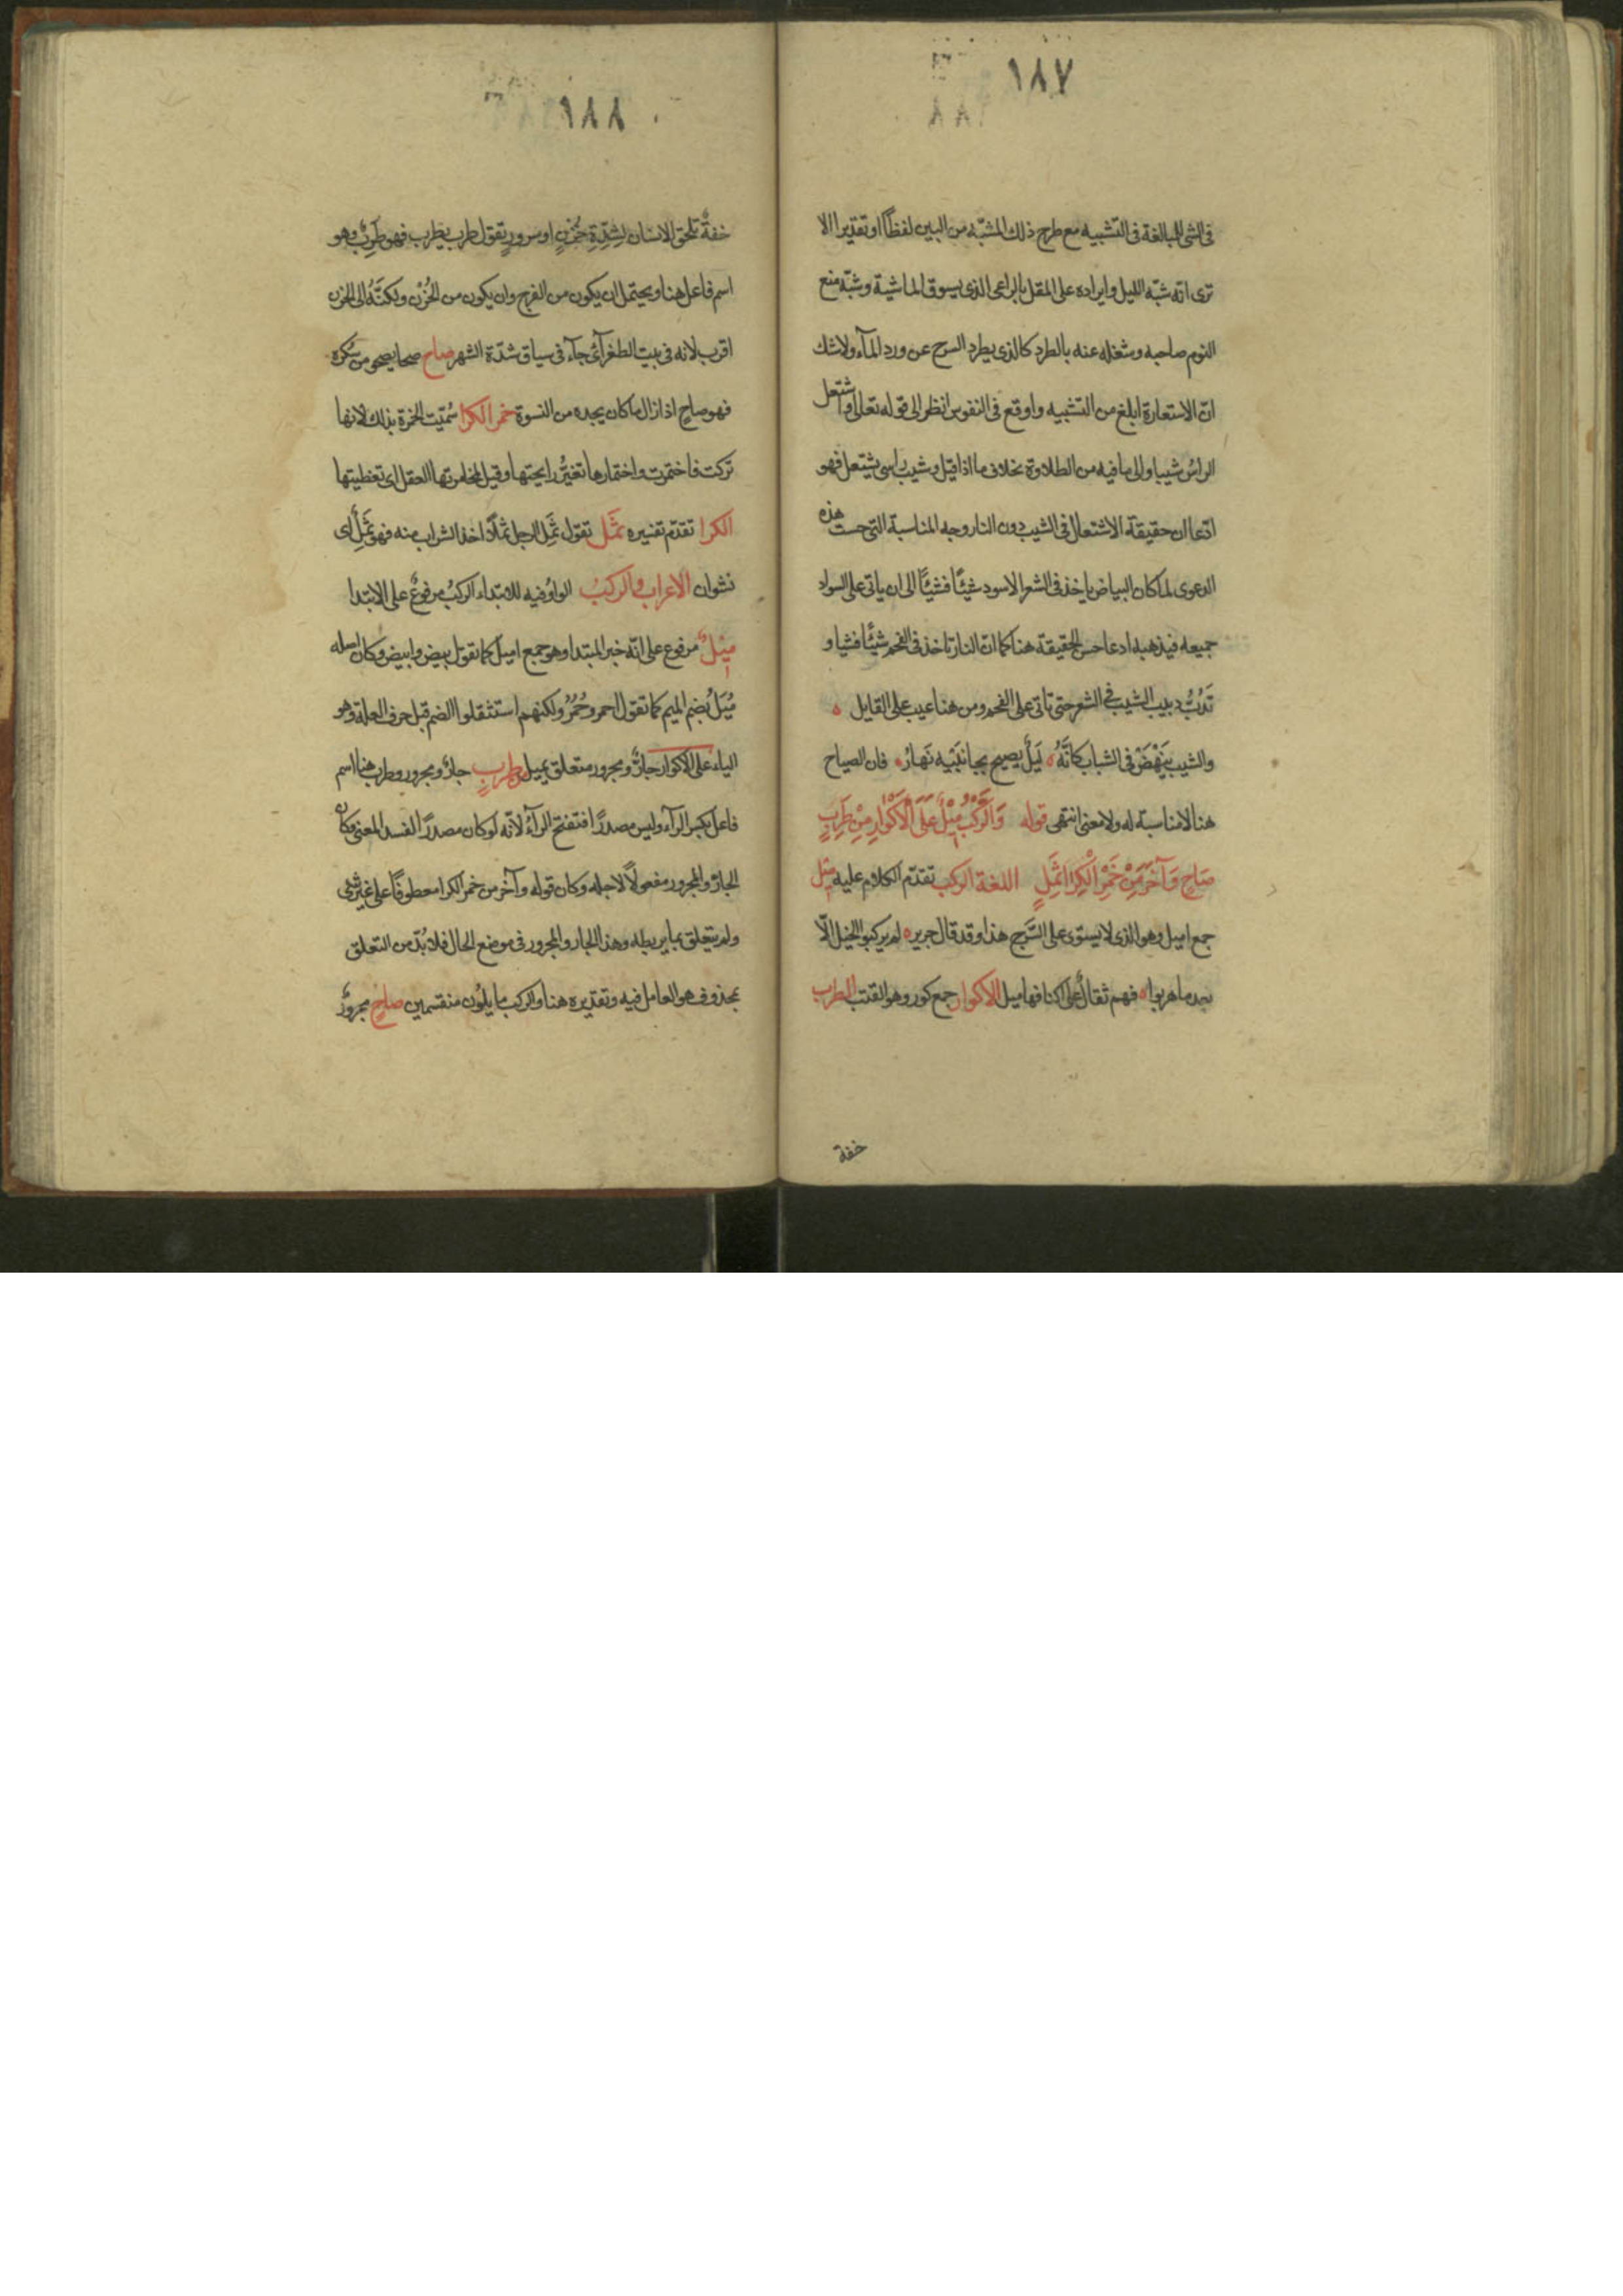 ١٨٧
فى الشى المبالغة فى التشبيه مع طرح ذلك المشبّه من البين لفظًا او تقديرا الا
ترى انّه شبّه الليل وايراده على المقل بالراعى الذى يسوق الماشية وشبّه منع
النوم صاحبه وشغله عنه بالطرد كالذى يطرد السرح عن ورد المآء ولاشك
انّ الاستعارة ابلغ من التشبيه واوقع فى النفوس انظر الى قوله تعالى واشتعل
الراس شيبا والى ما فيه من الطلاوة بخلاف ما اذا قيل وشيب راسى يشتعل فهو
ادّعا ان حقيقة الاشتعال فى الشيب دون النار وجه المناسبة التى حست هذه
الدعوى لما كان البياض ياخذ فى الشعر الاسود شيئًا فشيئًا الى ان ياتى على السواد
جميعه فيذهبه ادعا حسن الحقيقة هنا كما انّ النار تاخذ فى الفحم شيئًا فشيا و
تَدُبُّ دبيب الشيب فى الشعر حتى تاتى على الفحم ومن هنا عيب على القايل ه
والشيب يَنْهَضُ فى الشباب كانَّهُ ه لَيلٌ يصيح بجانبَيْه نَهارُ ه فان الصياح
هنا لا مناسبة له ولا معنى انتهى قوله وَالرَّكْبُ مِيْلٌ عَلَى الْأَكْوَارِ مِنْ طَرِبٍ
صَاحٍ وَآخَرَ مِنْ خَمْرِ الْكِرَا ثَمِلٍ اللغة الركب تقدّم الكلام عليه ميل
جمع اميل وهو الذى لا يستوى على السَّرج هذا وقد قال جرير ه لم يركبوا الخيل الّا
بعد ما هربوا ه فهم ثقالٌ على اكنافها ميل الاكوار جمع كور وهو القتب الطرب
خفة
١٨٨
خفةٌ تلحق الانسان لِشدّةِ حُزنٍ او سرورٍ تقول طرب يطرب فهو طَرِبٌ وهو
اسم فاعل هنا ويحتمل ان يكون من الفرح وان يكون من الحُزْن ولكنَّهُ الى الحزن
اقرب لانه فى بيت الطغرآئى جآء فى سياق شدّة الشهر صاح صحا يصحو من سُكره
فهو صاحٍ اذا زال ما كان يجده من النسوة خمر الكرا سُمّيت الخمرة بذلك لانها
تركت فاختمرت واختمارها تغيّرُ رايحتها وقيل لمخامرتها العقل اى تغطيتها
الكرا تقدّم تفسيره ثَمِل تقول ثَمِل الرجل ثملًا اذا اخذ الشراب منه فهو ثَمِلٌ اى
نشوان الاعراب والركبُ الواوُ فيه للابتداء الركبُ مرفوعٌ على الابتدا
مِيْلٌ مرفوع على انّه خبر المبتدا وهو جمع اميل كما تقول بيض وابيض وكان اصله
مُيْلٌ بضم الميم كما تقول احمر وحُمُرٌ ولكنهم استثقلوا الضم قبل حرف العلة وهو
الياء على الاكوار جارٌّ ومجرور متعلق بميل من طربٍ جارٌ ومجرور وطرب هنا اسم
فاعل بكسر الرآء وليس مصدرًا فتفتح الرآءُ لانّه لو كان مصدرًا لفسد المعنى وكان
الجارّ والمجرور مفعولًا لاجله وكان قوله وآخر من خمر الكرا معطوفًا على غير شى
ولم يتعلق بما يربطه وهذا الجار والمجرور فى موضع الحال فلا بُدّ من التعلق
بمحذوف هو العامل فيه وتقديره هنا والركب مايلوُن منقسمين صاحٍ مجرورٌ